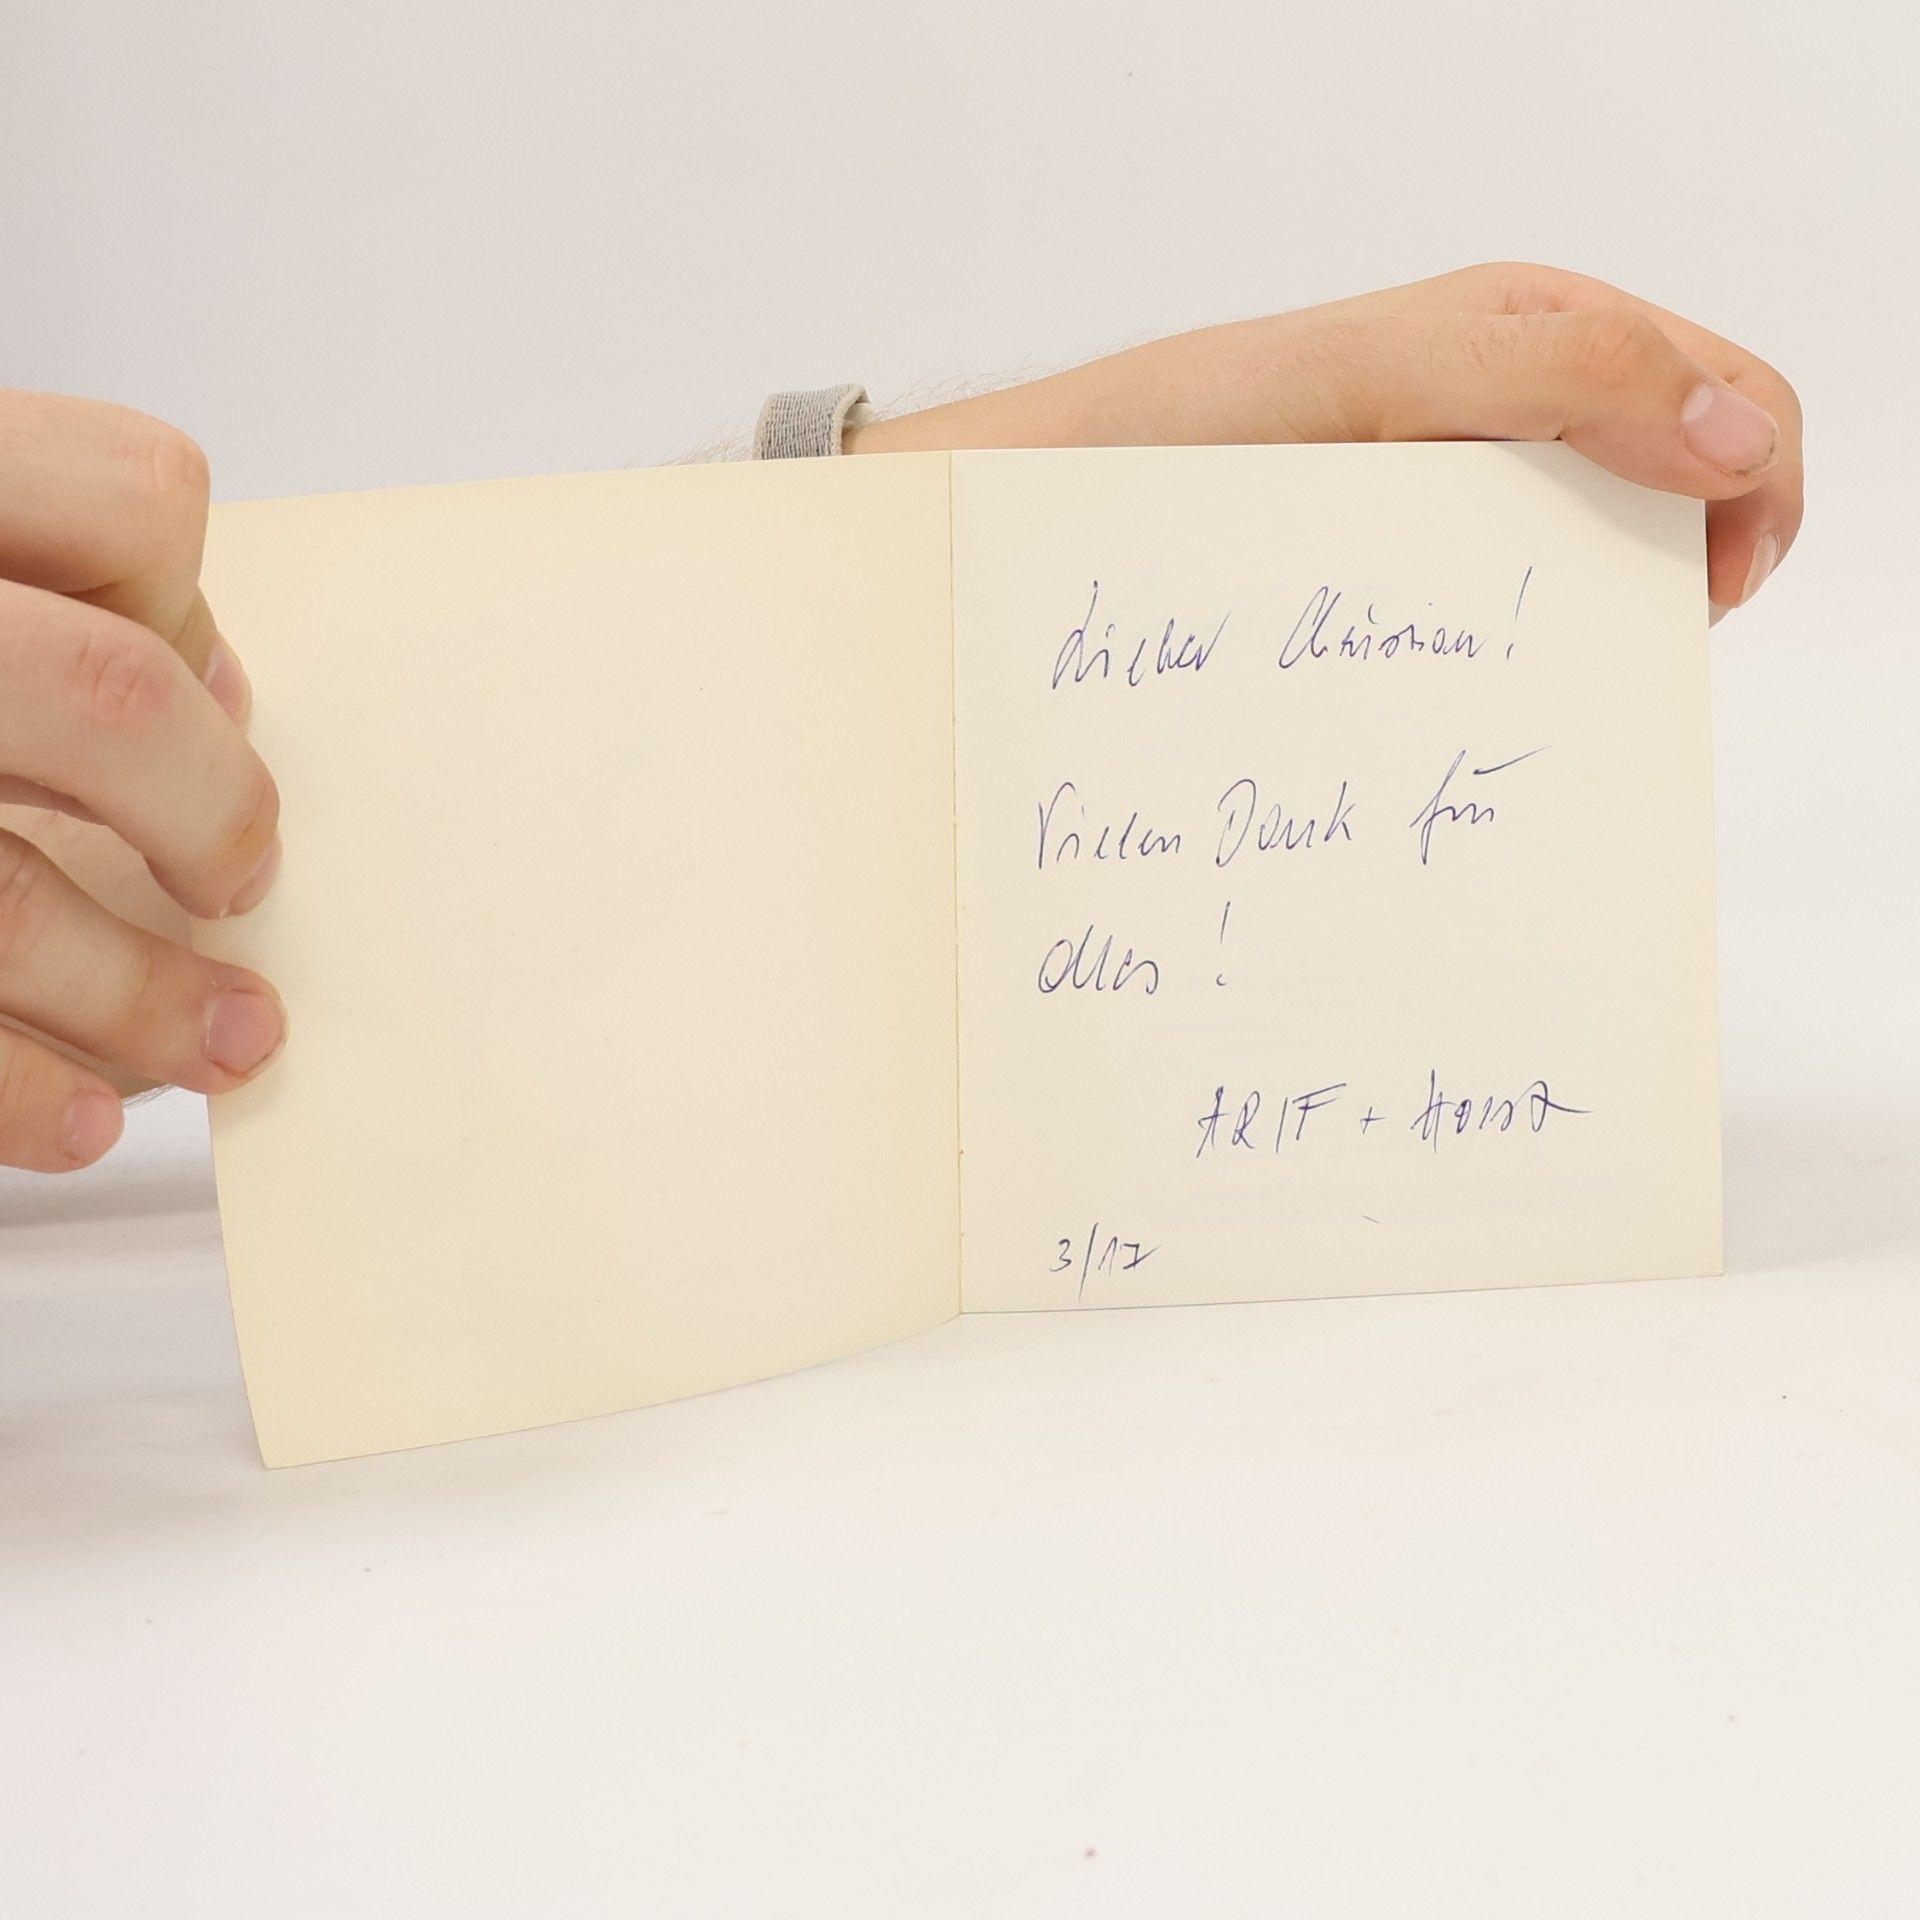 Lieber Christian!
Vielen Dank für
alles!
ARIF + Horst
3/17